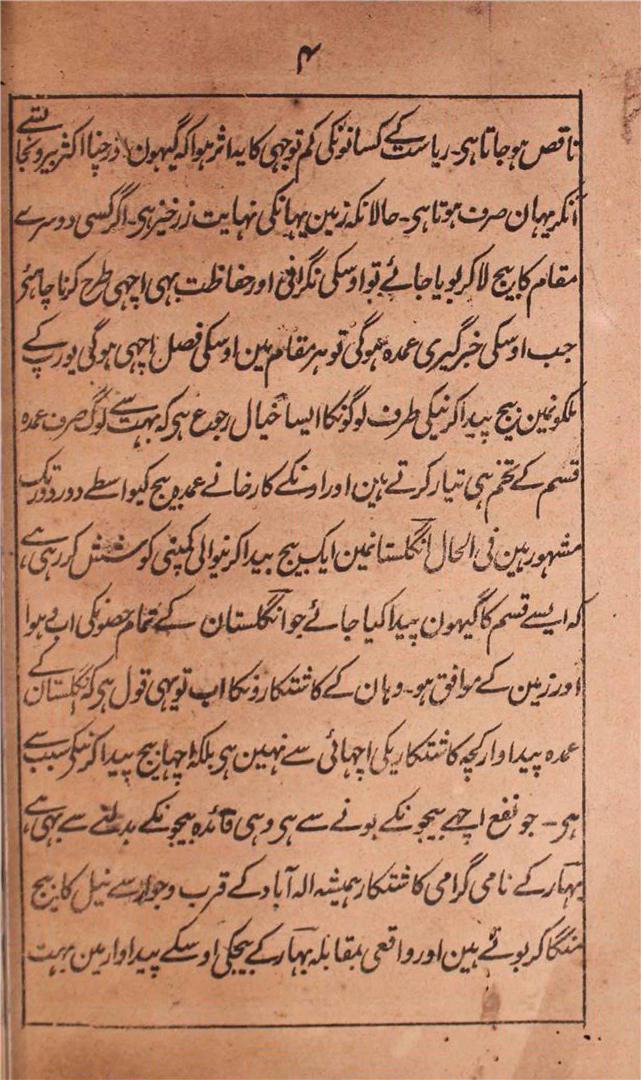 ۴
ناقص ہوجاتا ہی۔ ریاست کے کسانونکی کم توجہی کا یہ اثر ہوا کہ گیہون اکثر بیرونجات سے
آنکر یہان صرف ہوتا ہی۔ حالانکہ زمین یہانکی نہایت زرخیز ہی۔ اگر کسی دوسرے
مقام کا بیج لاکر بویا جائے تو اوسکی نگرانی اور حفاظت بہی اچہی طرح کرنا چاہئے
جب اوسکی خبرگیری عمدہ ہوگی تو ہر مقام مین اوسکی فصل اچہی ہوگی یورپ کے
ملکونمین بیج پیدا کرنیکی طرف لوگونکا ایسا خیال رجوع ہی کہ بہت سے لوگ صرف عمدہ
قسم کے تخم ہی تیار کرتے ہین اور اونکے کارخانے عمدہ بیج کیواسطے دور دور تک
مشہور ہین فی الحال انگلستانمین ایک بیج پیدا کرنیوالی کمپنی کوشش کر رہی ہے
کہ ایسے قسم کا گیہون پیدا کیا جائے جو انگلستان کے تمام حصونکی اب ہوا
اور زمین کے موافق ہو۔ وہان کے کاشتکارونکا اب تو یہی قول ہی کہ انگلستان کے
عمدہ پیداوار کچہ کاشتکاریکی اچہائی سے نہین ہی بلکہ اچہا بیج پیدا کرنیکی سبب سے
ہی۔ جو نفع اچہے بیجونکے بونے سے ہی وہی فائدہ بیجونکے بدلنے سے بہی ہے،
بہار کے نامی گرامی کاشتکار ہمیشہ الہ آباد کے قرب و جوار سے نیل کا بیج
منگاکر بوتے ہین اور واقعی بمقابلہ بہار کے بیجکی اوسکے پیداوار مین بہت